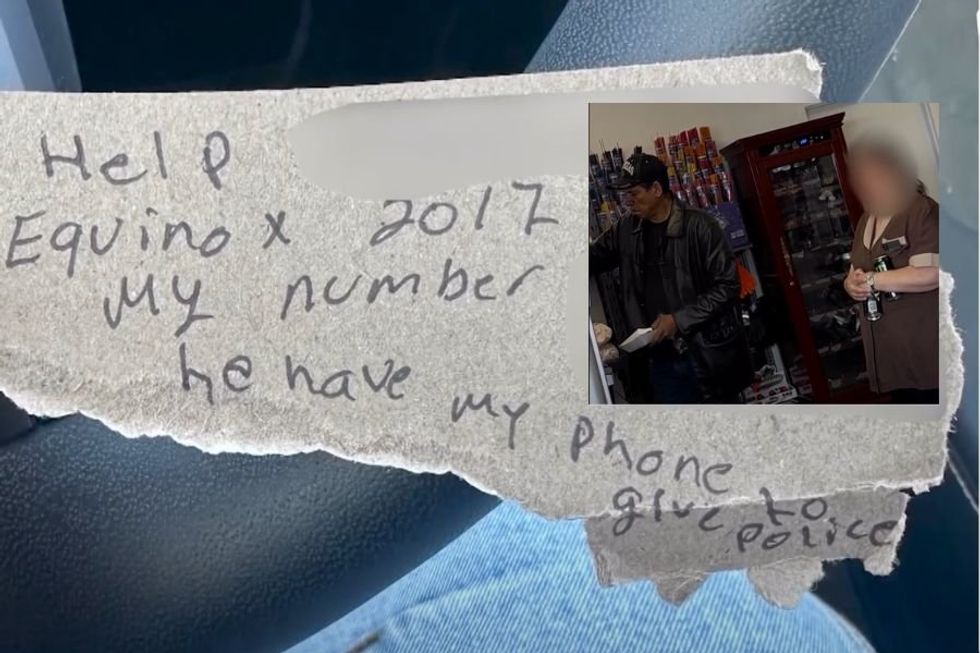 Help
Equinox 2017
My number
he have my phone
give to
police